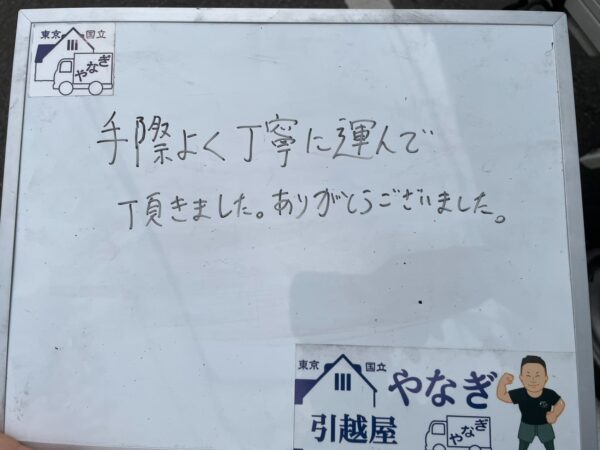 東京 国立
やなぎ
手際よく丁寧に運んで
頂きました。ありがとうございました。
東京 国立
やなぎ
引越屋
やなぎ